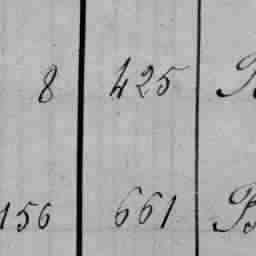 8 425
156 661